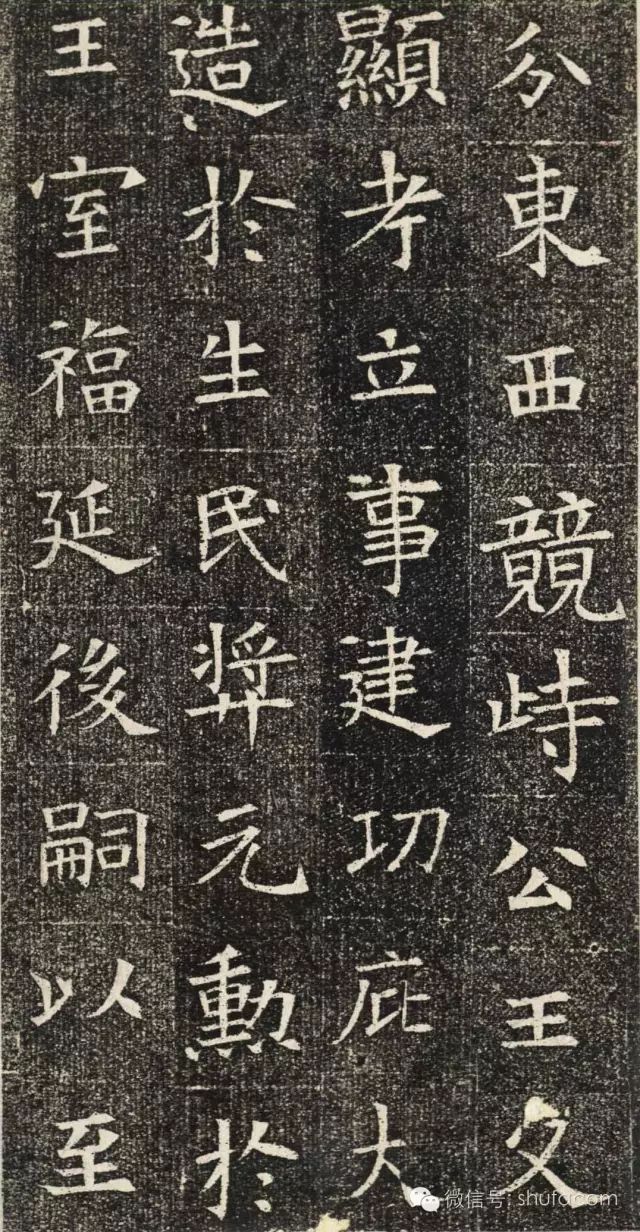 分東西競峙公王父
顯考立事建功庇大
造於生民弉元勳於
王室福延後嗣以至
微信号: shufacom